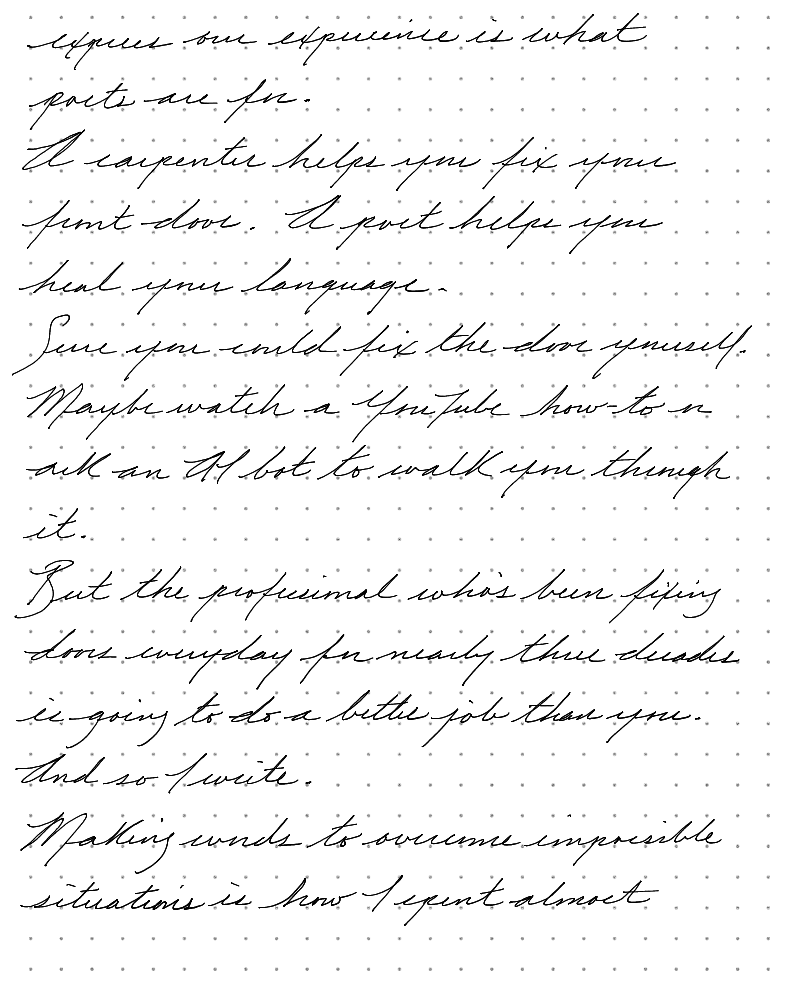 express our experience is what
poets are for.
A carpenter helps you fix your
front door. A poet helps you
heal your language.
Sure you could fix the door yourself.
Maybe watch a YouTube how-to or
ask an AI bot to walk you through
it.
But the professional who's been fixing
doors everyday for nearly three decades
is going to do a better job than you.
And so I write.
Making words to overcome impossible
situations is how I spent almost